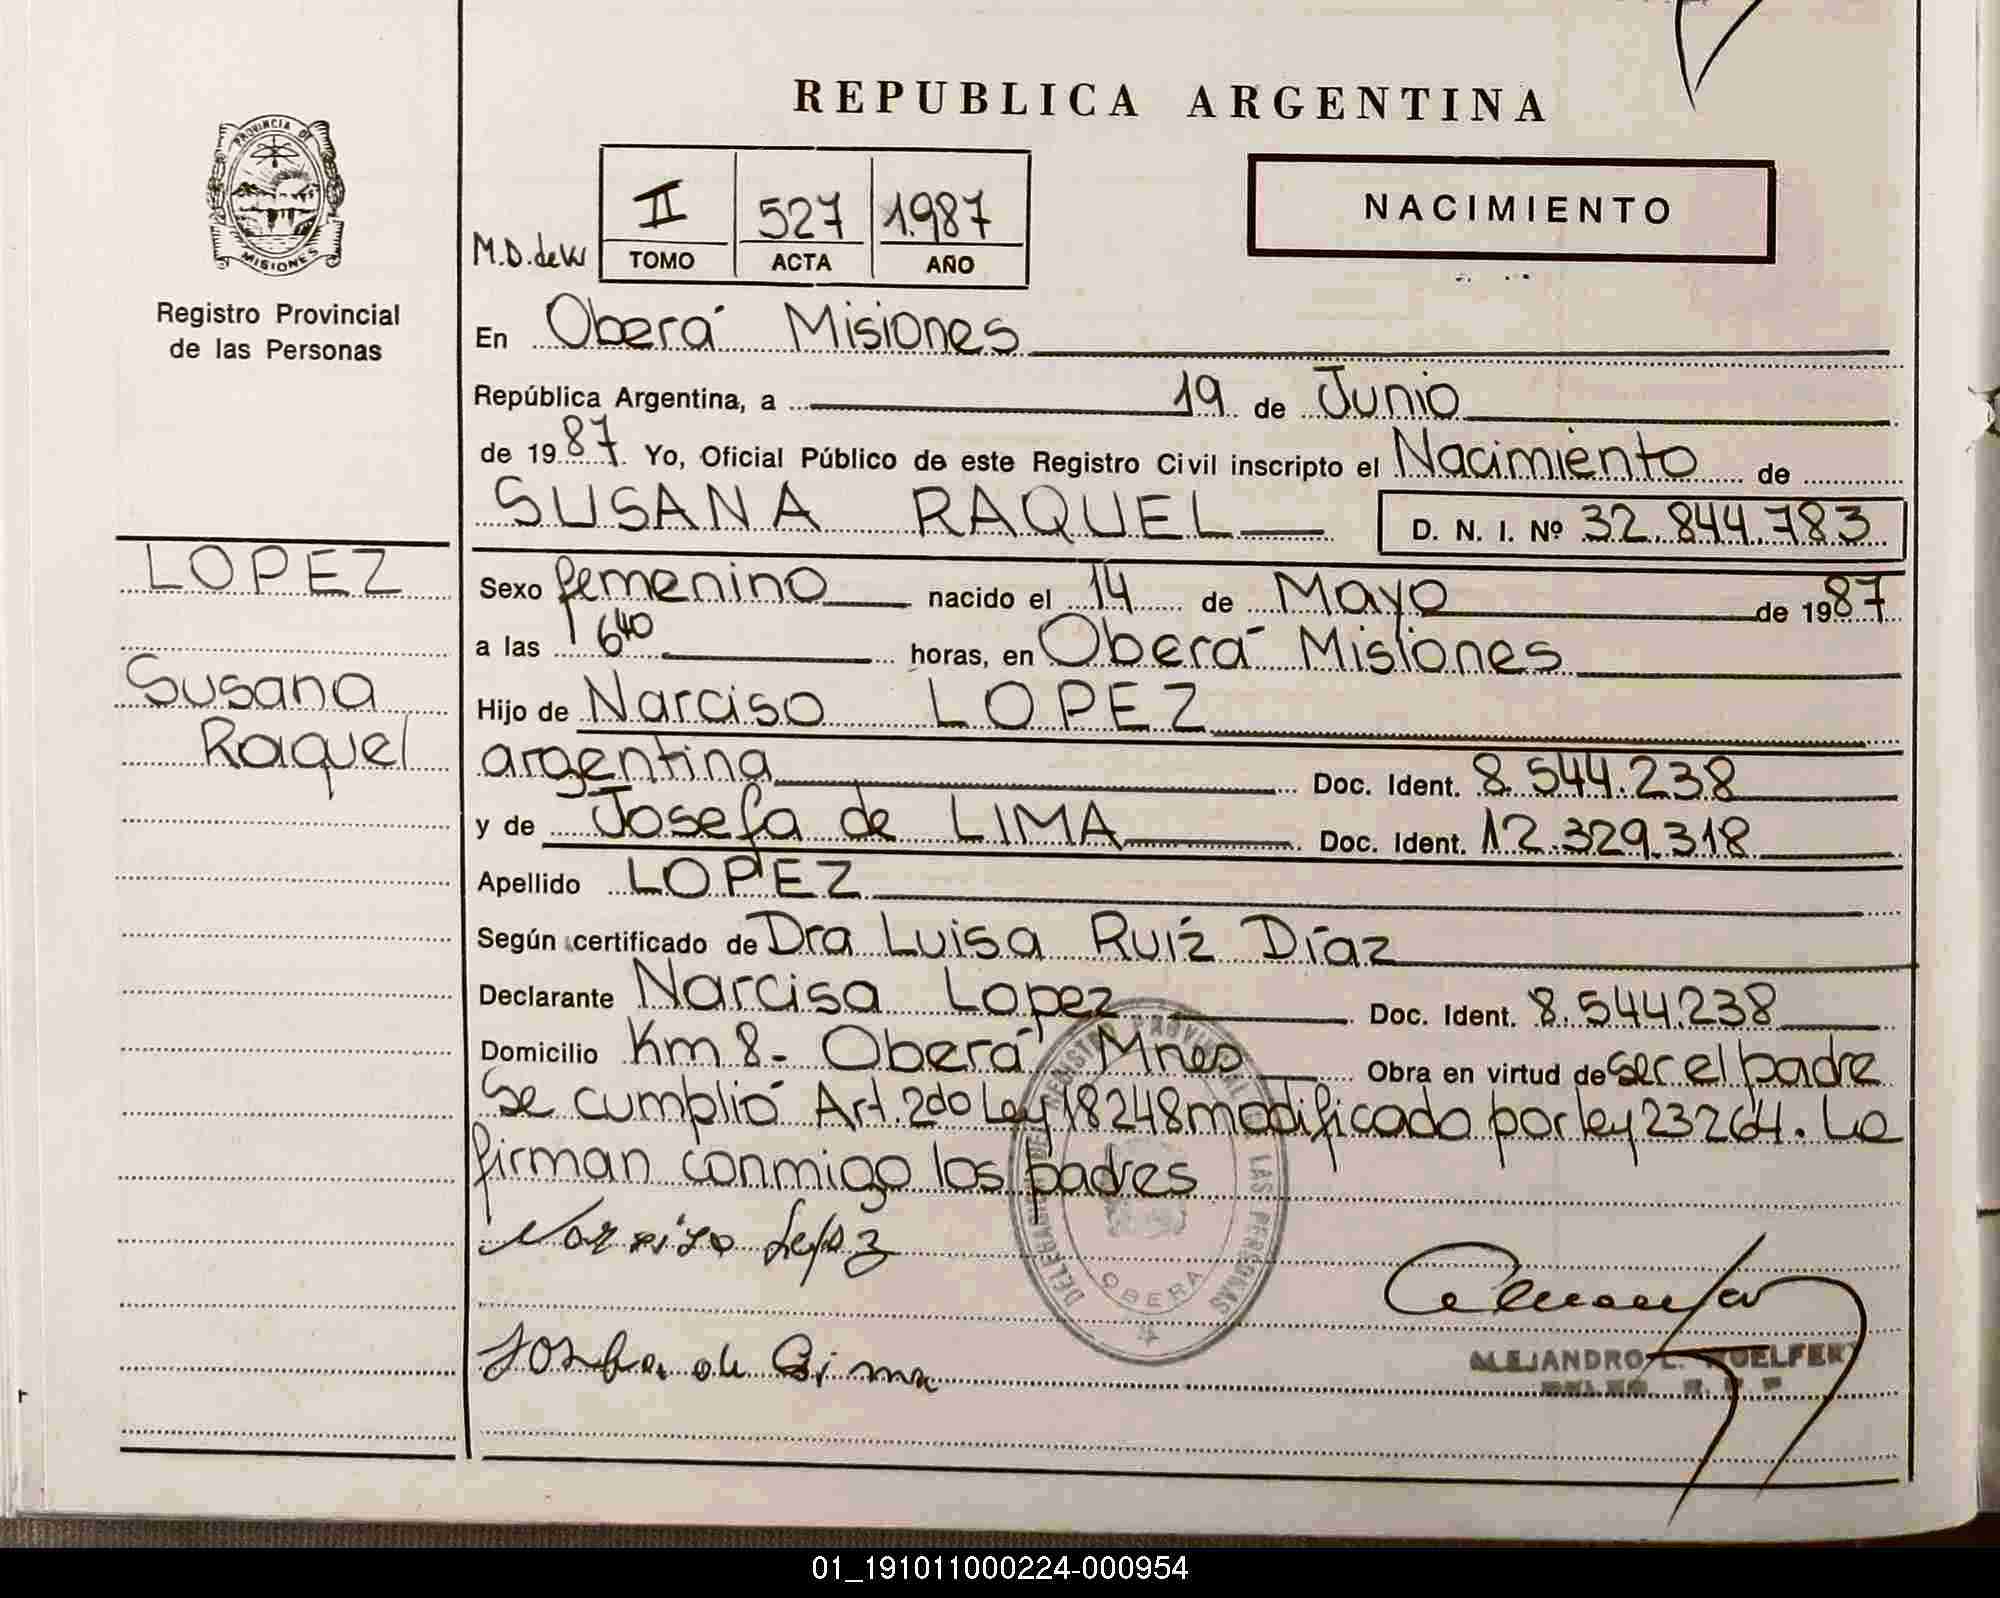 REPUBLICA ARGENTINA
PROVINCIA DE
MISIONES
Registro Provincial
de las Personas
NACIMIENTO
II 527 1.987
TOMO ACTA AÑO
M.D.deW
En Oberá Misiones
República Argentina, a 19 de Junio
de 1987. Yo, Oficial Público de este Registro Civil inscripto el Nacimiento de
SUSANA RAQUEL D. N. I. Nº 32.844.783
LOPEZ
Susana
Raquel
Sexo femenino nacido el 14 de Mayo de 1987
a las 16 40 horas, en Oberá Misiones
Hijo de Narciso LOPEZ
argentina Doc. Ident. 8.544.238
y de Josefa de LIMA Doc. Ident. 12.329.318
Apellido LOPEZ
Según certificado de Dra Luisa Ruíz Díaz
Declarante Narcisa Lopez Doc. Ident. 8.544.238
Domicilio Km 8- Oberá Mnes Obra en virtud de ser el padre
Se cumplió Art. 2do Ley 18248 modificado por ley 23264. La
firman conmigo los padres
Narciso Lopez
Josefa de Lima
REGISTRO PROVINCIAL DE LAS PERSONAS
OBERA
ALEJANDRO L.
01_191011000224-000954